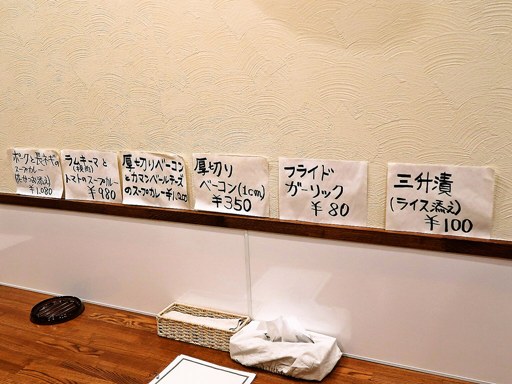 ポークと長ネギの
スープカレー
¥1,080
ラムキーマと
トマトのスープカレー
¥980
厚切りベーコン
とカマンベールチーズ
のスープカレー¥1,200
厚切り
ベーコン(1cm)
¥350
フライド
ガーリック
¥80
三升漬
(ライス添え)
¥100